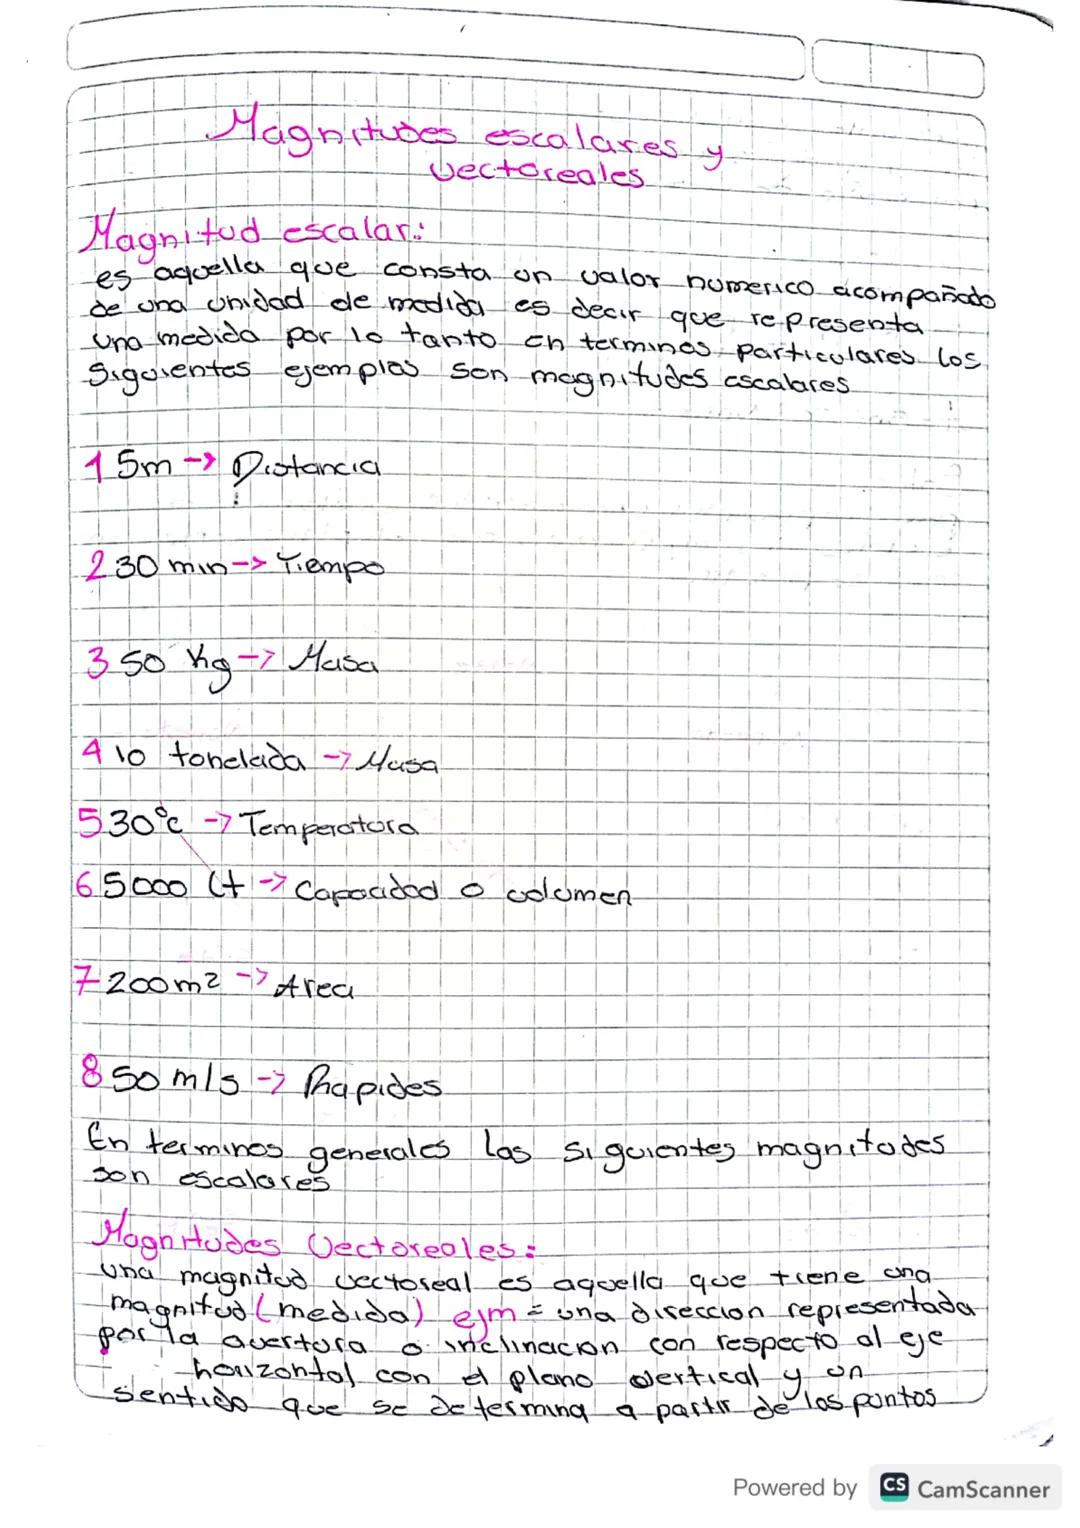 Magnitudes escalares y
vectoreales
Magnitud escalar:
es aquella que consta un valor numerico acompañado
de una unidad de medida es decir que representa
una medida por lo tanto en terminos particulares los
siguientes ejemplos son magnitudes escalares
1 5m -> Distancia
2 30 min -> Tiempo
3 50 Kg -> Masa
4 10 tonelada -> Masa
5 30°c -> Temperatura
6 5000 Lt -> Capacidad o volumen
7 200m2 -> Area
8 50 m/s -> Rapides
En terminos generales las siguientes magnitudes
son escalares
Magnitudes Vectoreales:
una magnitud vectoreal es aquella que tiene una
magnitud (medida) ejm = una direccion representada
por la avertura o inclinacion con respecto al eje
horizontal con el plano vertical y un
sentido que se determina a partir de los puntos
Powered by CS CamScanner